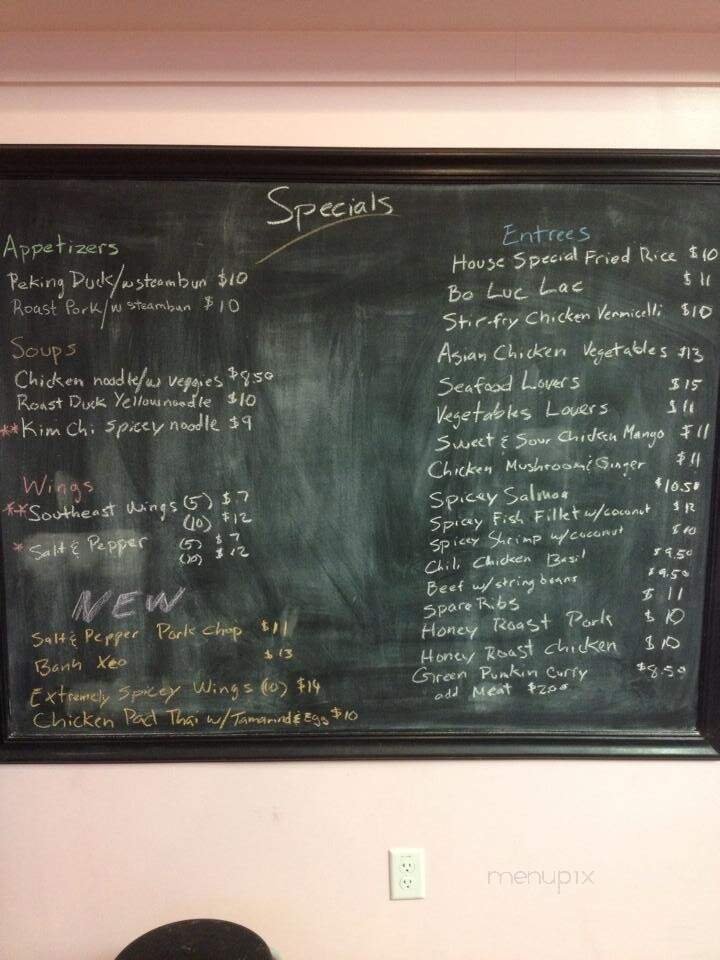 Specials
Appetizers
Peking Duck/w steambun $10
Roast Pork/w steambun $10
Soups
Chicken noodle/w veggies $8.50
Roast Duck Yellow noodle $10
**Kim Chi Spicey noodle $9
Wings
**Southeast Wings (5) $7
(10) $12
*Salt & Pepper (5) $7
(10) $12
NEW
Salt & Pepper Pork Chop $11
Banh Xeo $13
Extremely Spicey Wings (10) $14
Chicken Pad Thai w/Tamarind & Egg $10
Entrees
House Special Fried Rice $10
Bo Luc Lac $11
Stir-fry Chicken Vermicelli $10
Asian Chicken Vegetables $13
Seafood Lovers $15
Vegetables Lovers $11
Sweet & Sour Chicken Mango $11
Chicken Mushroom & Ginger $11
Spicey Salmon $10.50
Spicey Fish Fillet w/coconut $12
Spicey Shrimp w/coconut $10
Chili Chicken Basil $9.50
Beef w/string beans $9.50
Spare Ribs $11
Honey Roast Pork $10
Honey Roast Chicken $10
Green Punkin Curry $8.50
add Meat $2.00
menupix